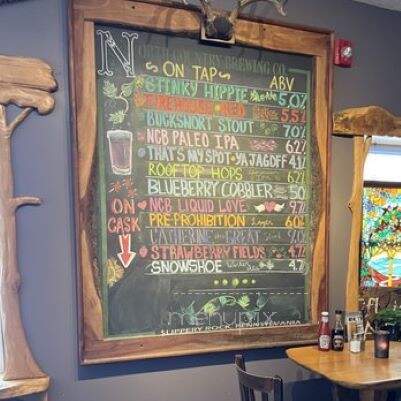 NORTH COUNTRY BREWING CO.
ON TAP ABV
STINKY HIPPIE Pale Ale 5.0%
FIREHOUSE RED 5.5%
BUCKSNORT STOUT 7.0%
NCB PALEO IPA 6.2%
THAT'S MY SPOT YA JAGOFF 4.1%
ROOFTOP HOPS
BLUEBERRY COBBLER 5.0
NCB LIQUID LOVE 9.7%
PRE-PROHIBITION Lager 6.0%
CATHERINE the GREAT
STRAWBERRY FIELDS 4.7%
SNOWSHOE 4.7
ON
CASK
menupix
SLIPPERY ROCK, PENNSYLVANIA